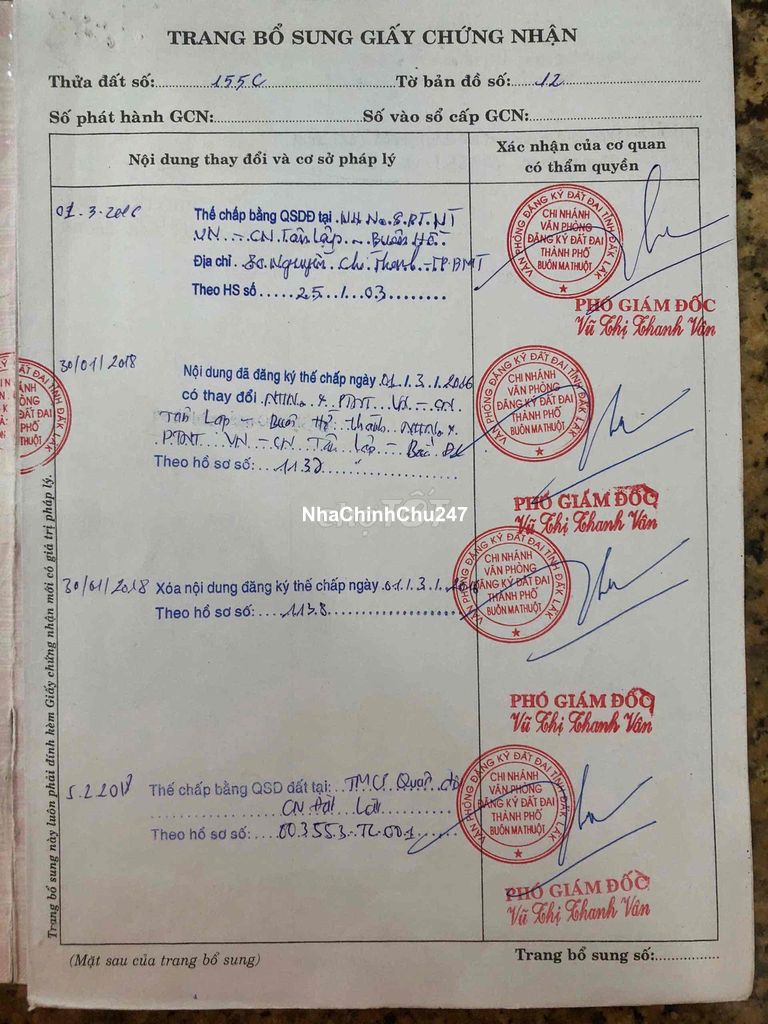 TRANG BỔ SUNG GIẤY CHỨNG NHẬN
Thửa đất số: 155C Tờ bản đồ số: 12
Số phát hành GCN: Số vào sổ cấp GCN:
Nội dung thay đổi và cơ sở pháp lý
Xác nhận của cơ quan
có thẩm quyền
01-3-2016 Thế chấp bằng QSDĐ tại NH No & PT NT
VN - CN Tân Lập - Buôn Hồ
Địa chỉ 80 Nguyễn Chí Thanh - TP BMT
Theo HS số 25103
VĂN PHÒNG ĐĂNG KÝ ĐẤT ĐAI TỈNH ĐẮK LẮK
CHI NHÁNH
VĂN PHÒNG
ĐĂNG KÝ ĐẤT ĐAI
THÀNH PHỐ
BUÔN MA THUỘT
PHÓ GIÁM ĐỐC
Vũ Thị Thanh Vân
30/01/2018 Nội dung đã đăng ký thế chấp ngày 01/3/2016
có thay đổi NHNo & PTNT VN - CN
Tân Lập - Buôn Hồ thành NHNo &
PTNT VN - CN Tân Lập - Bắc ĐL
Theo hồ sơ số: 1137
VĂN PHÒNG ĐĂNG KÝ ĐẤT ĐAI TỈNH ĐẮK LẮK
CHI NHÁNH
VĂN PHÒNG
ĐĂNG KÝ ĐẤT ĐAI
THÀNH PHỐ
BUÔN MA THUỘT
PHÓ GIÁM ĐỐC
Vũ Thị Thanh Vân
NhaChinhChu247
30/01/2018 Xóa nội dung đăng ký thế chấp ngày 01/3/2016
Theo hồ sơ số: 1138
VĂN PHÒNG ĐĂNG KÝ ĐẤT ĐAI TỈNH ĐẮK LẮK
CHI NHÁNH
VĂN PHÒNG
ĐĂNG KÝ ĐẤT ĐAI
THÀNH PHỐ
BUÔN MA THUỘT
PHÓ GIÁM ĐỐC
Vũ Thị Thanh Vân
5.2.2018 Thế chấp bằng QSD đất tại: TMCP Quân đội
CN Đắk Lắk
Theo hồ sơ số: 003553.TC.001
VĂN PHÒNG ĐĂNG KÝ ĐẤT ĐAI TỈNH ĐẮK LẮK
CHI NHÁNH
VĂN PHÒNG
ĐĂNG KÝ ĐẤT ĐAI
THÀNH PHỐ
BUÔN MA THUỘT
PHÓ GIÁM ĐỐC
Vũ Thị Thanh Vân
Trang bổ sung này luôn phải đính kèm Giấy chứng nhận mới có giá trị pháp lý.
(Mặt sau của trang bổ sung)
Trang bổ sung số: